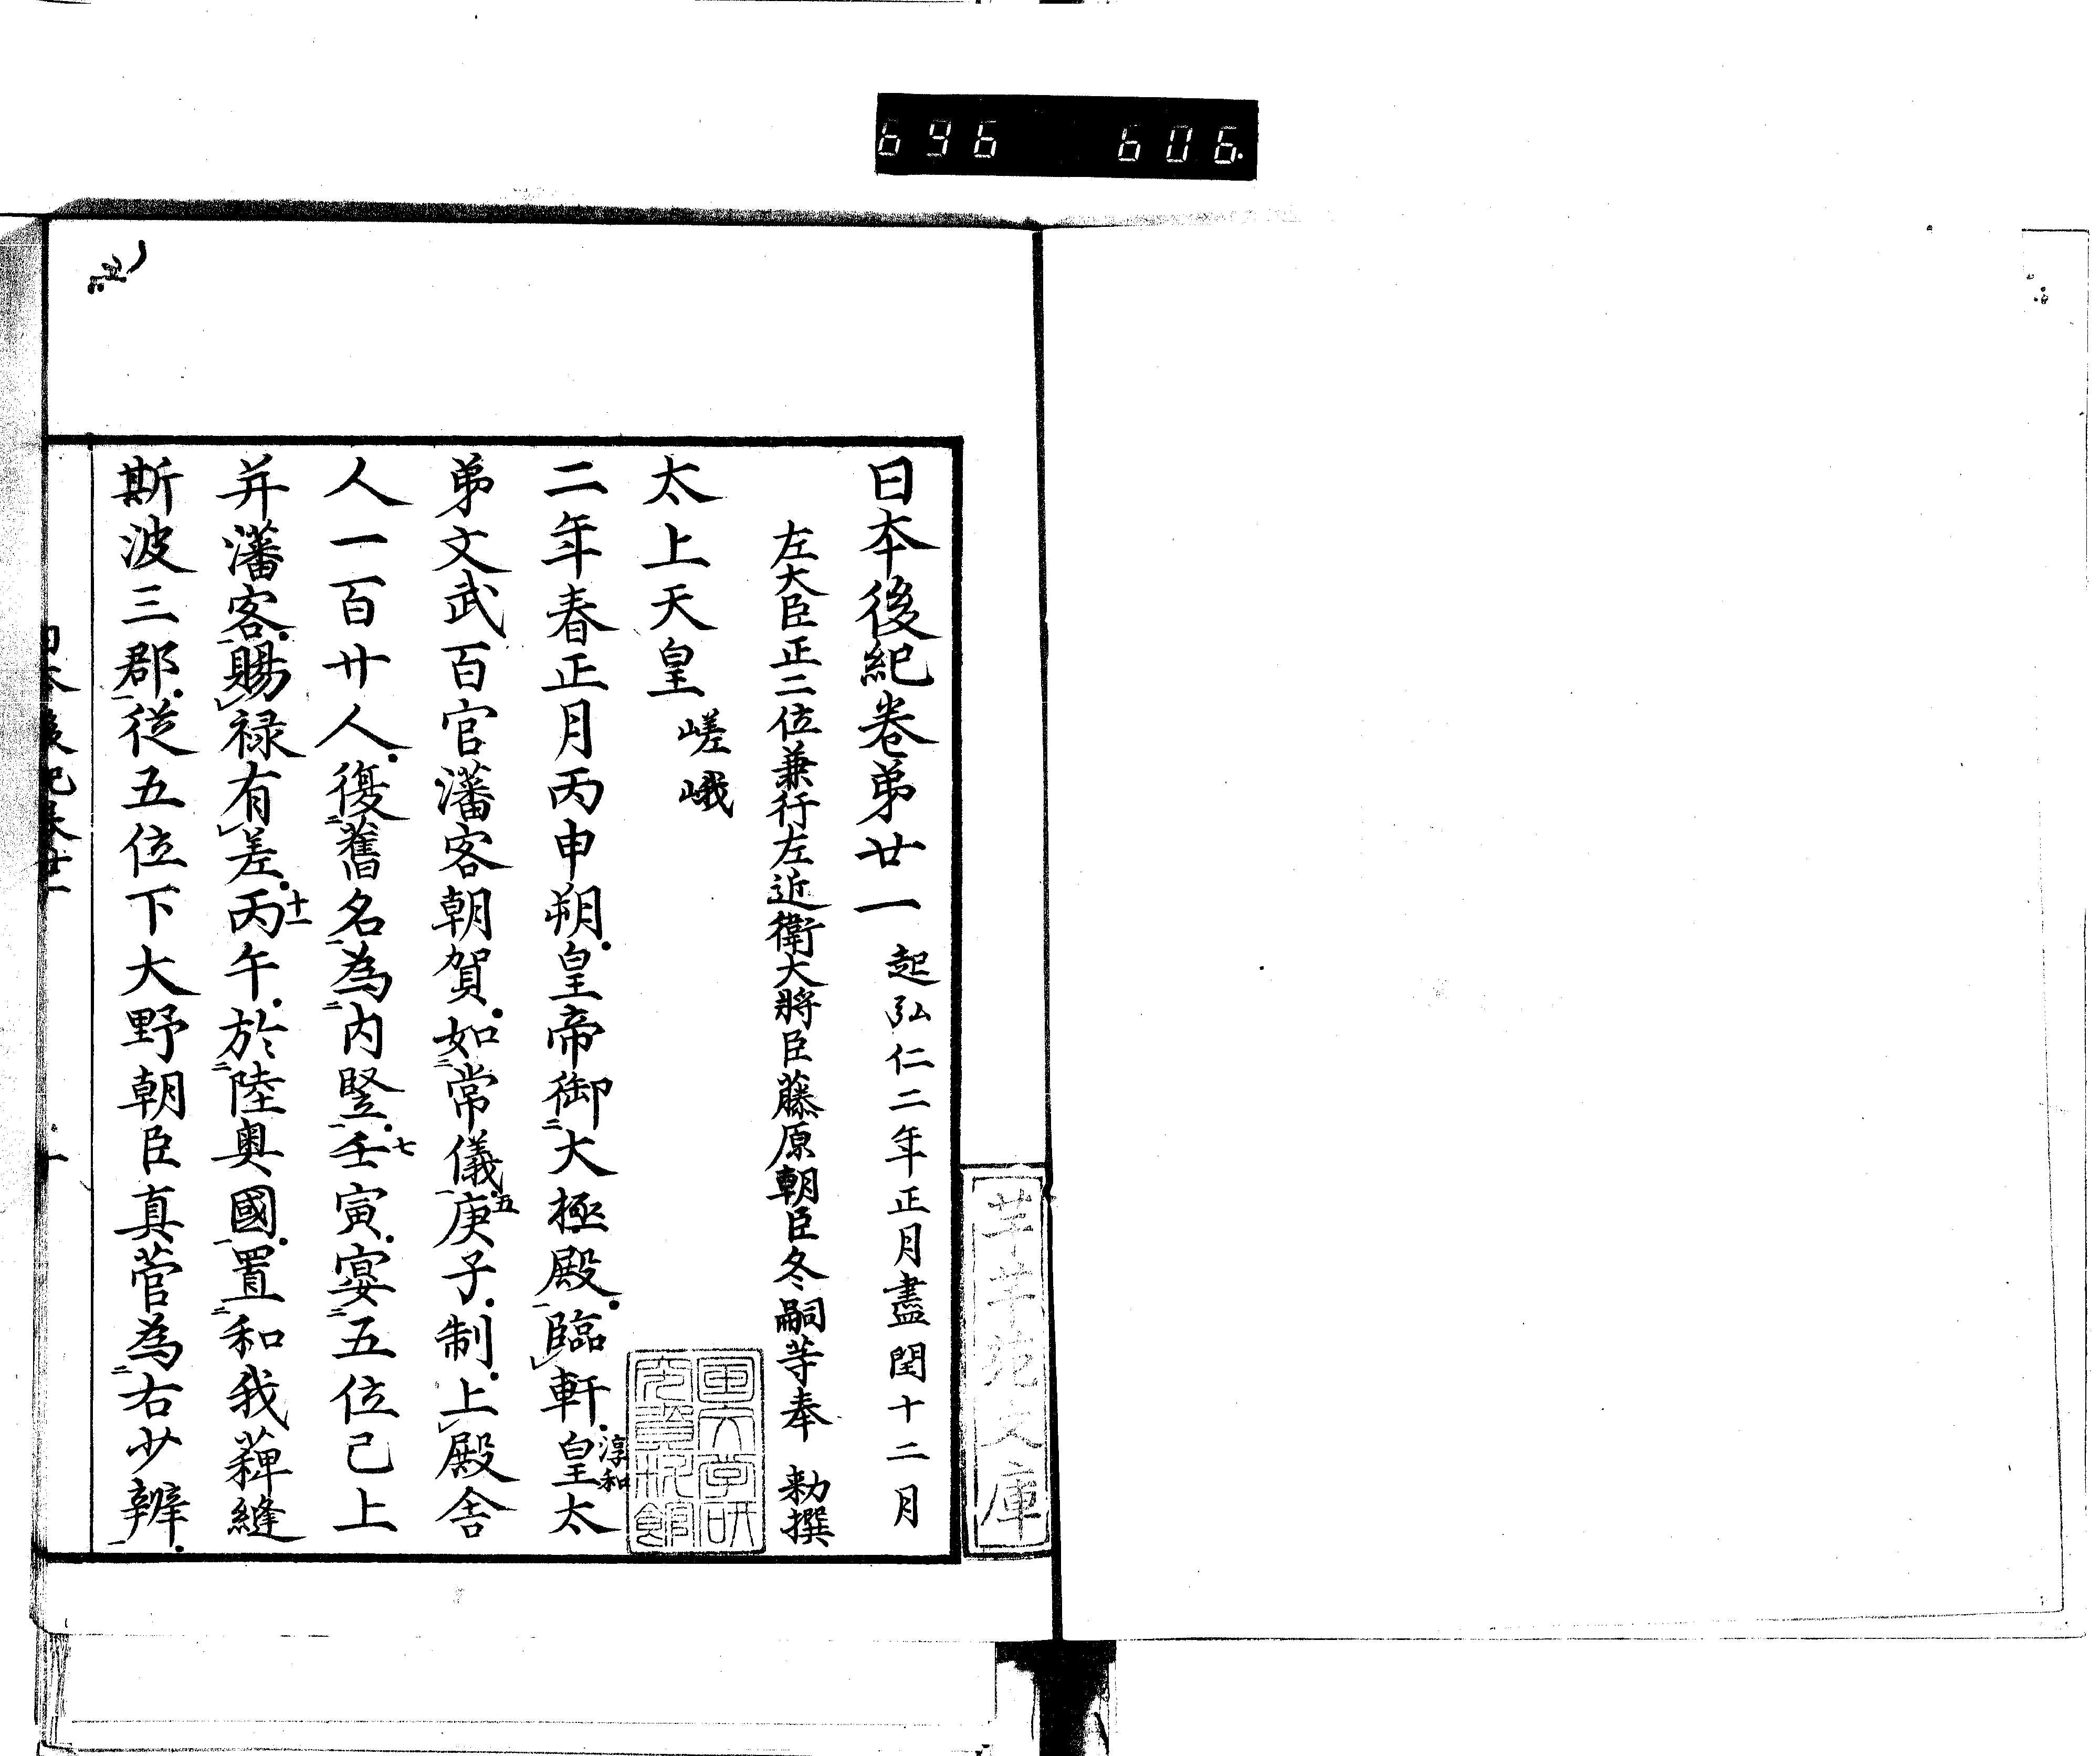 696 606.
日本後紀卷第廿一 起弘仁二年正月盡閏十二月
左大臣正二位兼行左近衛大將臣藤原朝臣冬嗣等奉 勅撰
太上天皇 嵯峨
二年春正月丙申朔皇帝御二大極殿一臨レ軒皇太淳和
弟文武百官瀋客朝賀如二常儀一庚五子制上レ殿舍
人一百廿人復二舊名一為二内竪一壬七寅宴二五位己上
并瀋客一賜レ禄有レ差丙十一午於二陸奥國一置二和我薭縫
斯波三郡一從五位下大野朝臣真菅為二右少辨一
芸文庫